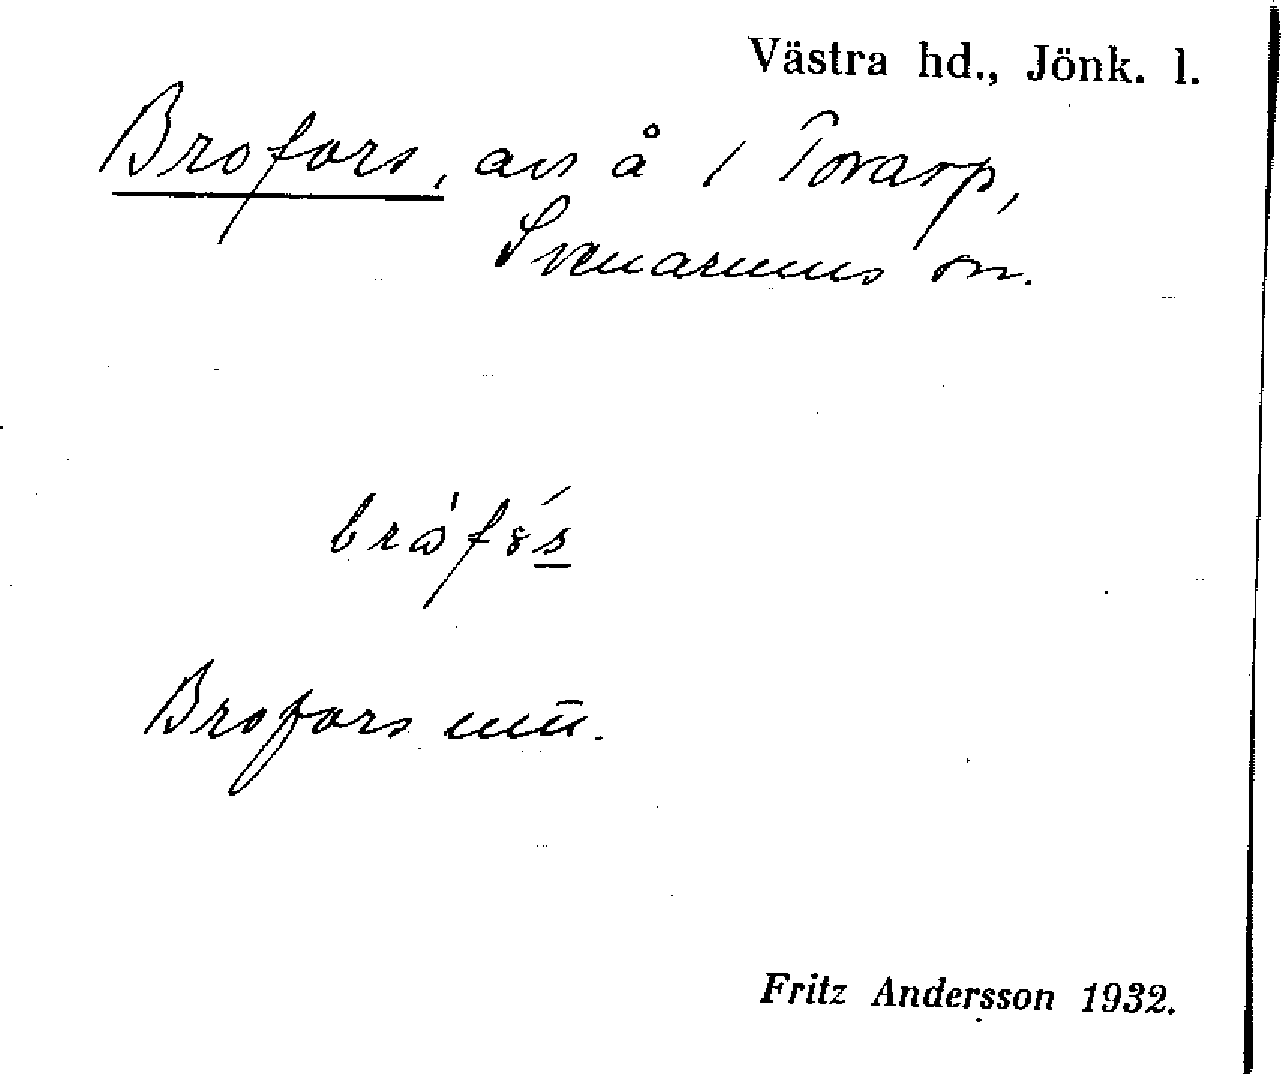 Västra hd., Jönk. l.
Brofors, avs å i Torarp,
Svenarums sn.
Brofors
Fritz Andersson 1932.